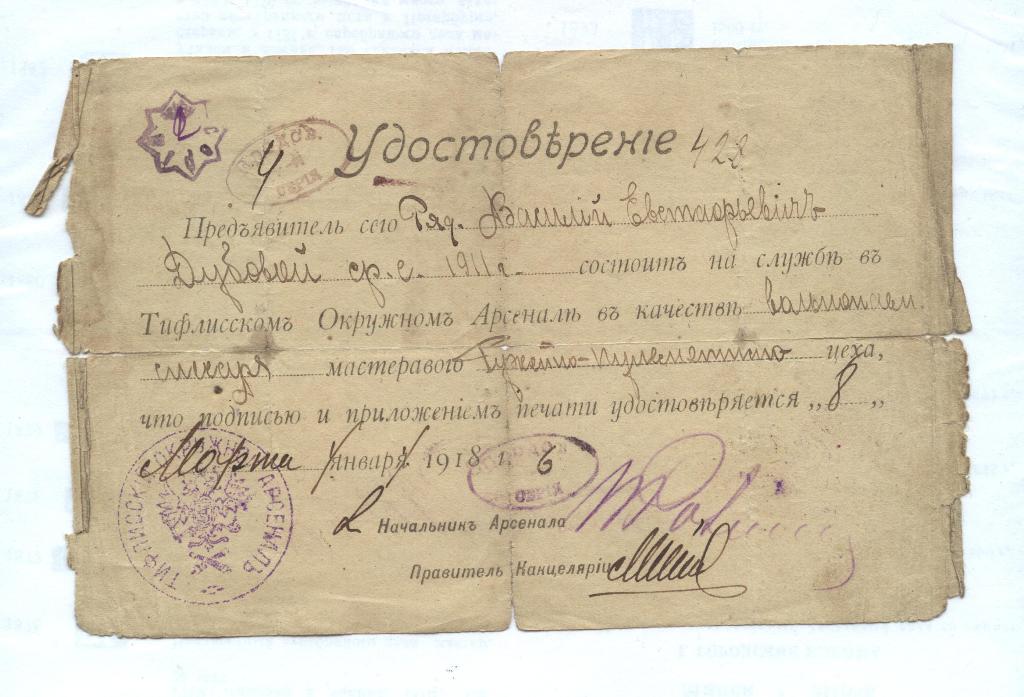 Удостовѣреніе 422
4
Предъявитель сего Ряд. Василій Евстафьевичъ
Дубовой ср. с. 1911 г. состоитъ на службѣ въ
Тифлисскомъ Окружномъ Арсеналѣ въ качествѣ вольнонаем.
слесаря мастерового Ружейно-пулеметнаго цеха,
что подписью и приложеніемъ печати удостовѣряется „8„
Марта января 1918 г. 6
Начальникъ Арсенала
Правитель Канцеляріи
ТИФЛИССКІЙ ОКРУЖНЫЙ АРСЕНАЛЪ